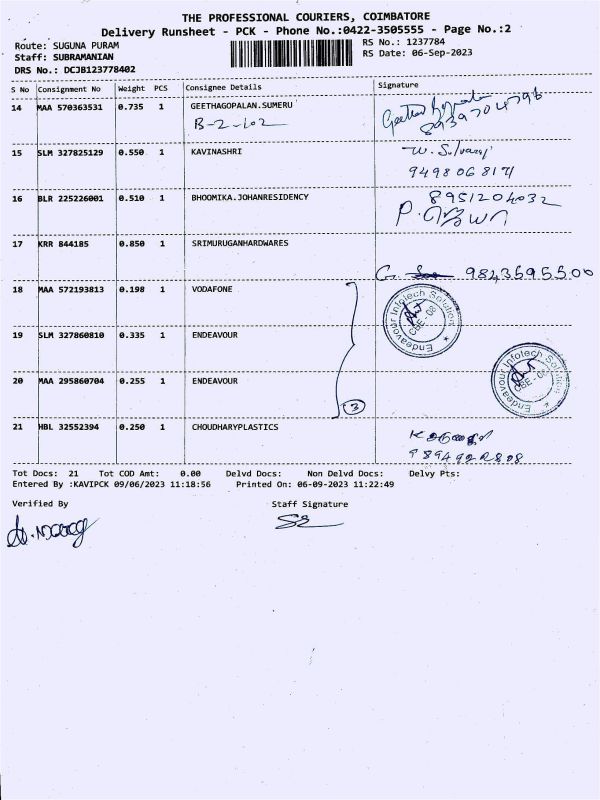 THE PROFESSIONAL COURIERS, COIMBATORE
Delivery Runsheet - PCK - Phone No.:0422-3505555 - Page No.:2
Route: SUGUNA PURAM
RS No.: 1237784
Staff: SUBRAMANIAN
RS Date: 06-Sep-2023
DRS No.: DCJB123778402
S No Consignment No Weight PCS Consignee Details Signature
14 MAA 570363531 0.735 1 GEETHAGOPALAN.SUMERU
B-2-102
15 SLM 327825129 0.550 1 KAVINASHRI
9498068171
16 BLR 225226001 0.510 1 BHOOMIKA.JOHANRESIDENCY
8951204032
17 KRR 844185 0.850 1 SRIMURUGANHARDWARES
9843595500
18 MAA 572193813 0.198 1 VODAFONE
Endeavour Infotech Solution
CBE-08
19 SLM 327860810 0.335 1 ENDEAVOUR
20 MAA 295860704 0.255 1 ENDEAVOUR
Endeavour Infotech Solution
CBE-08
3
21 HBL 32552394 0.250 1 CHOUDHARYPLASTICS
Tot Docs: 21 Tot COD Amt: 0.00 Delvd Docs: Non Delvd Docs: Delvy Pts:
Entered By :KAVIPCK 09/06/2023 11:18:56 Printed On: 06-09-2023 11:22:49
Verified By Staff Signature